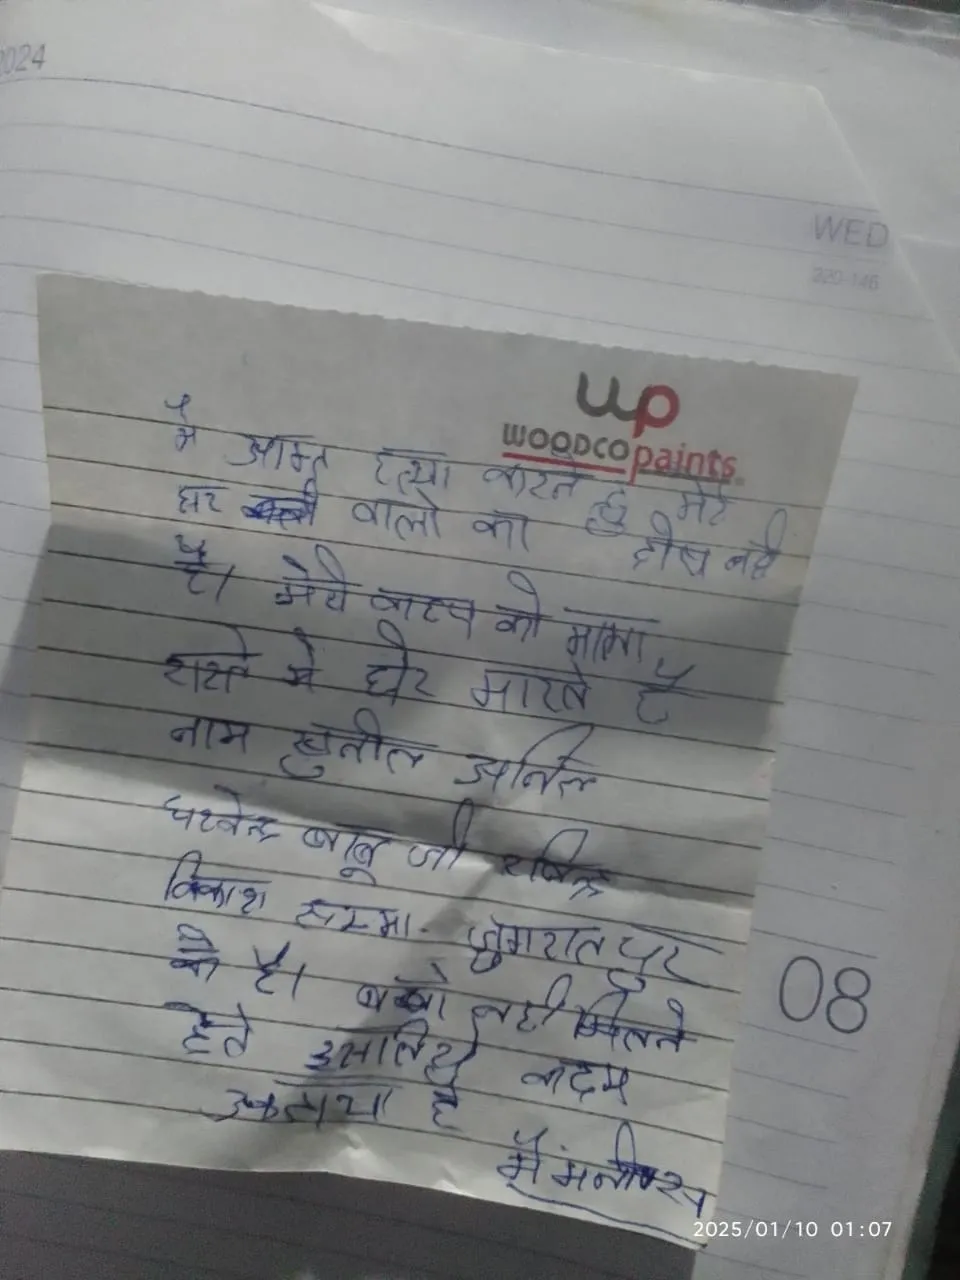 2024
WED
220-146
wp
WOODCO paints
मै आत्म हत्या करते हु मेरे
घर वालो का दोष नही
है। मेरी का को मामा
रास्ते मे घेर मारते है
नाम सुनील अनिल
बाबू जी
विकाश जुगरातपुर
के है। नही मिलने
देते इसलिए कदम
उठाया है
मैं मनीष
08
2025/01/10 01:07